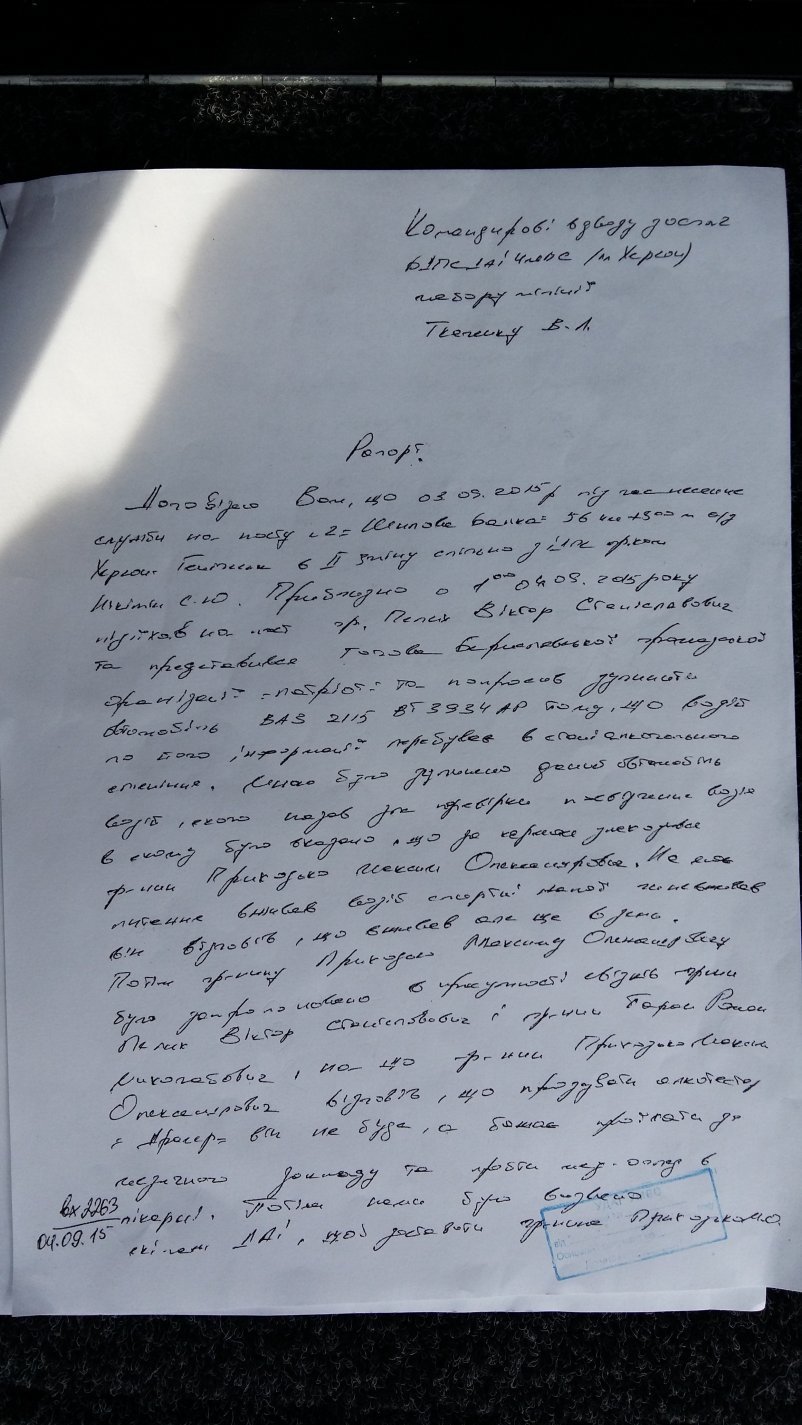 Командирові взводу
(м Херсон)
майору міліції
Ткаченку В. Л.
Рапорт.
Доповідаю Вам, що 03.09.2015р під час несення
служби на посту №2 = Шилова Балка = 56 км +300м а/д
Херсон- в ІІ зміну спільно з ІДПС
Нікітін С.Ю. Приблизно о 1⁰⁰ 04.09.2015 року
під'їхав на пост гр. Пелих Віктор Станіславович
та представився Голова Бериславської громадської
організації =патріот= та попросив зупинити
автомобіль ВАЗ 2115 ВТ3934АР тому, що водій
по його інформації перебуває в стані алкогольного
сп'яніння. Мною було зупинено даний автомобіль
водій, якого надав для перевірки посвідчення водія
в якому було вказано, що за кермом знаходився
гр-нин Приходько Максим Олександрович. На моє
питання вживав водій спиртні напої
він відповів, що вживав але ще в день.
Потім гр-нину Приходько Максиму Олександровичу
було запропоновано в присутності свідків гр-нин
Пелих Віктор Станіславович і гр-нин Роман
Миколайович, на що гр-нин Приходько Максим
Олександрович відповів, що продувати алкотестер
=Драгер= він не буде, а бажає проїхати до
медичного закладу та пройти мед. огляд в
лікарні. Потім нами було визвано
екіпаж ДАІ, щоб доставити гр-нина Приходько М.О.
вх 2263
04.09.15